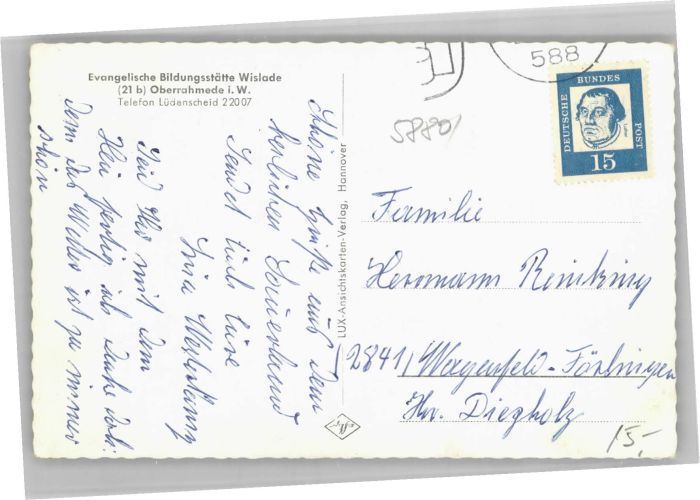 Evangelische Bildungsstätte Wislade
(21 b) Oberrahmede i. W.
Telefon Lüdenscheid 22007
Schöne Grüße aus dem
herlichen Sauerland
Sendet Euch Eure
Seid Ihr mit dem
Heu fertig ich denke doch.
Denn das Wetter ist ja immer
schön
LUX-Ansichtskarten-Verlag, Hannover
588
58801
DEUTSCHE BUNDES POST
15
Familie
Hermann Reinking
(2841) Wagenfeld-Förlingen
Kr. Diepholz
15,-